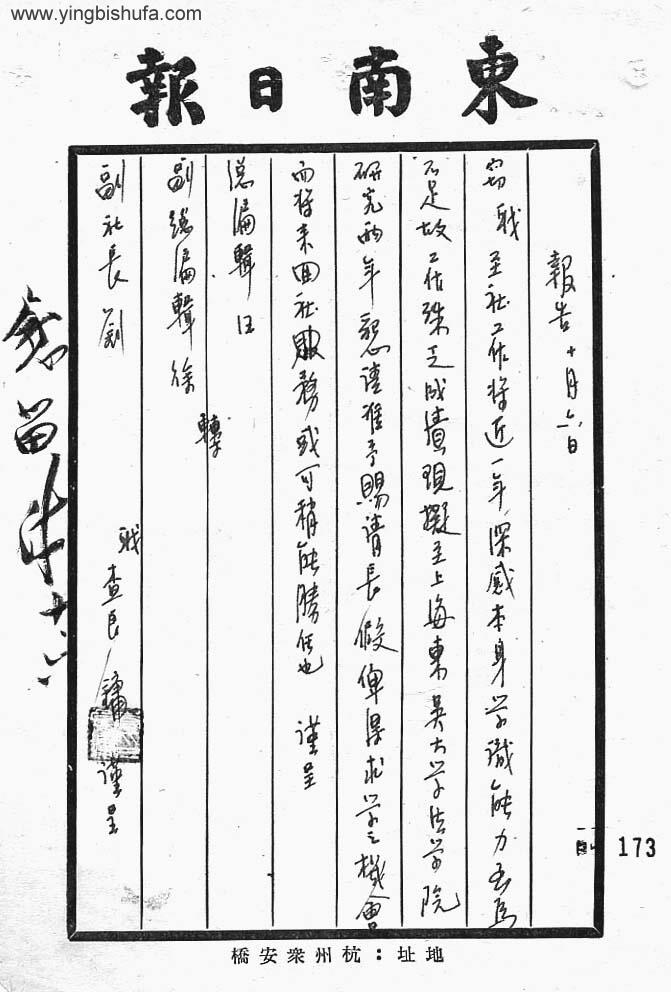 www.yingbishufa.com
東南日報
報告 十月六日
竊職至社工作將近一年深感本身学識能力至為
不足故工作殊乏成績現擬至上海東吳大学法学院
研究兩年懇請准予賜請長假俾得求学之機會
而將来回社服務或可稍能勝任也 謹呈
總編輯汪
副總編輯徐 轉
副社長劉
職查良鏞謹呈
十六
173
地址：杭州衆安橋